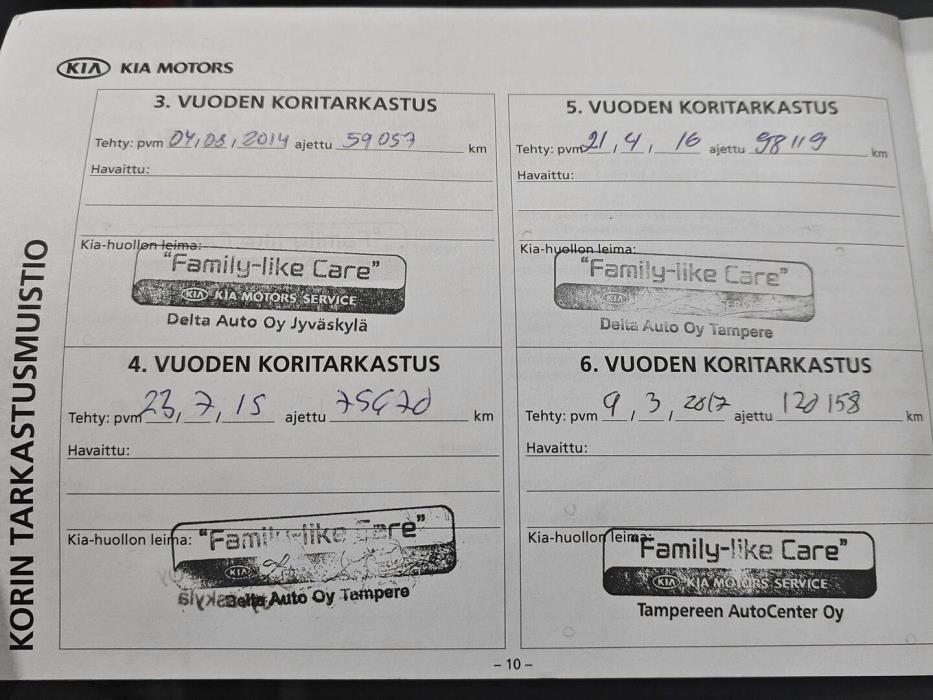 KIA KIA MOTORS
KORIN TARKASTUSMUISTIO
3. VUODEN KORITARKASTUS
Tehty: pvm 04, 08, 2014 ajettu 59057 km
Havaittu:
Kia-huollon leima:
"Family-like Care"
KIA KIA MOTORS SERVICE
Delta Auto Oy Jyväskylä
4. VUODEN KORITARKASTUS
Tehty: pvm 23, 7, 15 ajettu 75670 km
Havaittu:
Kia-huollon leima:
"Family-like Care"
KIA
Delta Auto Oy Tampere
5. VUODEN KORITARKASTUS
Tehty: pvm 21, 4, 16 ajettu 98119 km
Havaittu:
Kia-huollon leima:
"Family-like Care"
KIA
Delta Auto Oy Tampere
6. VUODEN KORITARKASTUS
Tehty: pvm 9, 3, 2017 ajettu 120158 km
Havaittu:
Kia-huollon leima:
"Family-like Care"
KIA KIA MOTORS SERVICE
Tampereen AutoCenter Oy
– 10 –